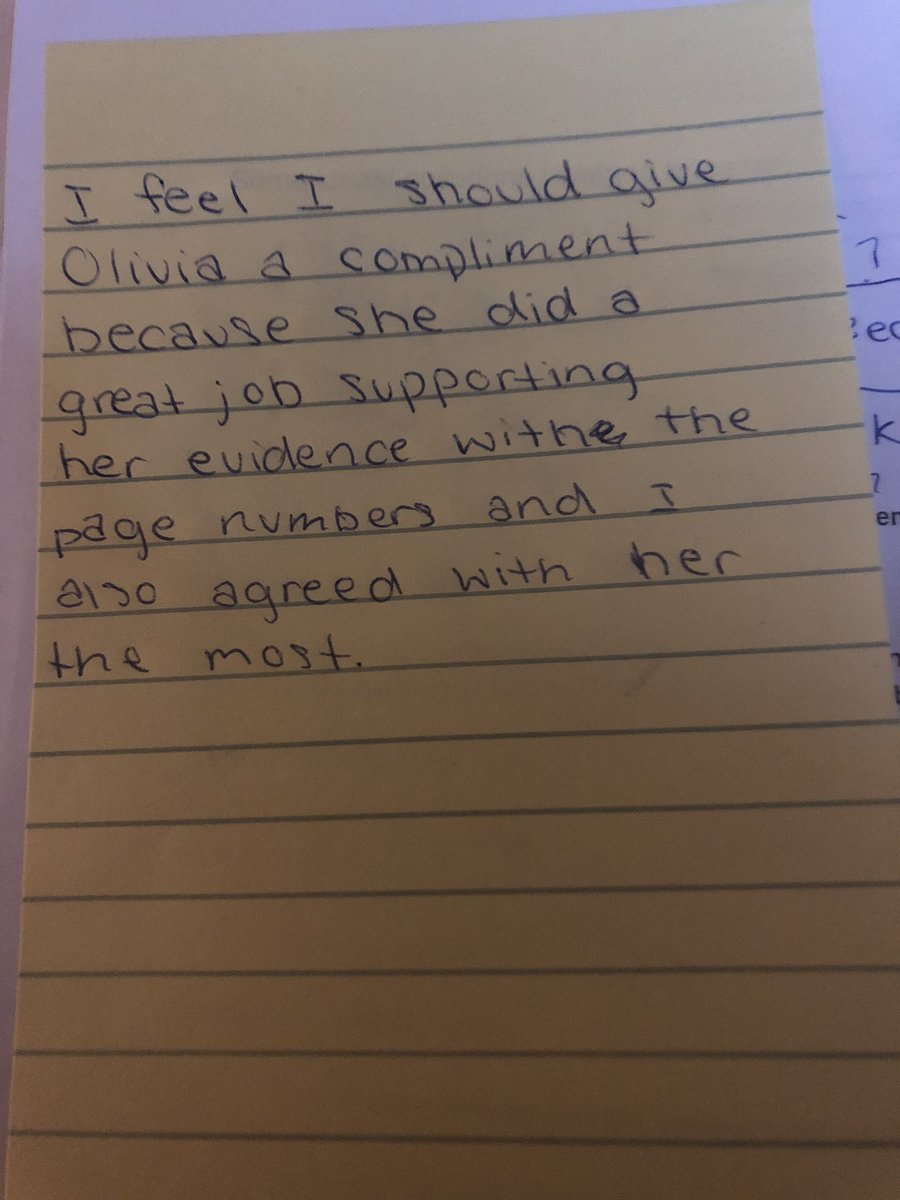 I feel I should give
Olivia a compliment
because she did a
great job supporting
her evidence withe the
page numbers and I
also agreed with her
the most.